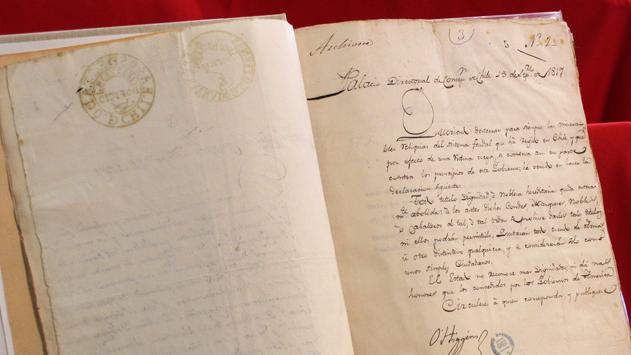 Archivese
3
5
Nº 2
Palacio Directoral de Concepn de Chile 15 de Sepre de 1817
Queriendo desterrar para siempre las miserables
reliquias del sistema feudal que ha regido en Chile, y que
por efecto de una rutina ciega se conserva aun en parte
contra los principios de este Gobierno; he venido en hacer la
declaracion siguiente
Todo titulo, Dignidad, ó Nobleza hereditaria queda
abolida: á los antes dichos Condes, Marqueses, Nobles,
ó Caballeros de tal, ó tal orden se prohive darles tal titulo,
ni ellos podran permitirlo. Quitarán todo escudo de Armas,
ú otro distintivo qualquiera, y se considerarán como
unos simples Ciudadanos.
El Estado no reconoce mas Dignidad, ni dá mas
honores que los concedidos por los Gobiernos de America
Circulese á quien corresponda, y publiquese
O'Higgins
CHILE